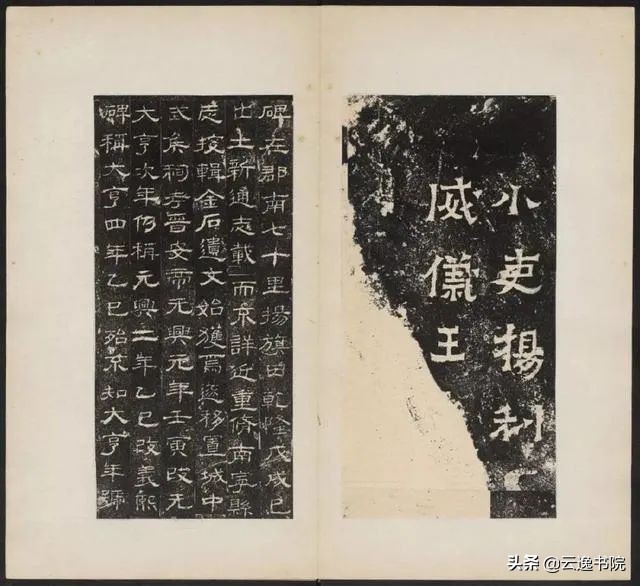 小吏楊利
威儀王
碑在郡南七十里揚旗田乾隆戊戌已
出土新通志載而不詳近重修南寧縣
志搜輯金石遺文始獲焉遂移置城中
武侯祠考晉安帝元興元年壬寅改元
大亨次年仍稱元興二年乙巳改義熙
碑稱大亨四年乙巳殆不知大亨年號
头条 @云逸书院